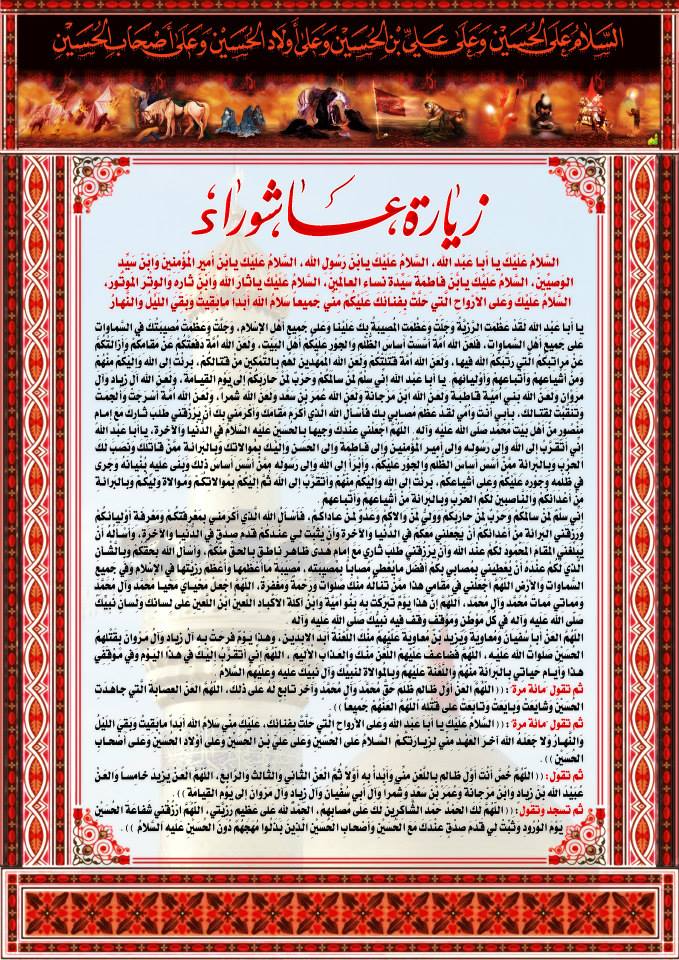 السَّلامُ عَلَى الحُسَيْن وَعَلى عَليِّ بْنِ الحُسَيْنِ وَعَلى أَولادِ الحُسَيْنِ وَعَلى أَصْحابِ الحُسَيْنِ
زيارة عاشوراء
السَّلامُ عَلَيْكَ يا أَبا عَبْدِ الله، السَّلامُ عَلَيْكَ يابْنَ رَسُولِ الله، السَّلامُ عَلَيْكَ يابْنَ أَمِيرِ المُؤْمِنِينَ وَابْنَ سَيِّدِ
الوَصِيِّينَ، السَّلامُ عَلَيْكَ يابْنَ فاطِمَةَ سَيِّدَةِ نِساءِ العالَمِينَ، السَّلامُ عَلَيْكَ ياثارَ الله وَابْنَ ثارِهِ وَالوِتْرَ المَوْتُورَ،
السَّلامُ عَلَيْكَ وَعَلى الأرواحِ الَّتِي حَلَّتْ بِفِنائِكَ عَلَيْكُمْ مِنِّي جَميعاً سَلامُ الله أَبَداً مابَقِيتُ وَبَقِيَ اللَيْلُ وَالنَّهارُ
يا أَبا عَبْدِ الله لَقَدْ عَظُمَتِ الرَّزِيَّةُ وَجَلَّتْ وَعَظُمَتِ المُصِيبَةُ بِكَ عَلَيْنا وَعَلى جَمِيعِ أَهْلِ الإسْلامِ، وَجَلَّتْ وَعَظُمَتْ مُصِيبَتُكَ فِي السَّماواتِ
عَلى جَمِيعِ أَهْلِ السَّماواتِ، فَلَعَنَ الله أُمَّةً أَسَّسَتْ أَساسَ الظُّلْمِ وَالجَوْرِ عَلَيْكُمْ أَهْلَ البَيْتِ، وَلَعَنَ الله أُمَّةً دَفَعَتْكُمْ عَنْ مَقامِكُمْ وَأَزالَتْكُمْ
عَنْ مَراتِبِكُمُ الَّتِي رَتَّبَكُمُ الله فِيها، وَلَعَنَ الله أُمَّةً قَتَلَتْكُمْ وَلَعَنَ الله المُمَهِّدِينَ لَهُمْ بِالتَّمْكِينِ مِنْ قِتالِكُمْ، بَرِئْتُ إِلى الله وَإِلَيْكُمْ مِنْهُمْ
وَمِنْ أَشْياعِهِمْ وَأَتْباعِهِمْ وَأَوْلِيائِهِمْ. يا أَبا عَبْدِ الله إِنِّي سِلْمٌ لِمَنْ سالَمَكُمْ وَحَرْبٌ لِمَنْ حارَبَكُمْ إِلى يَوْمِ القِيامَةِ، وَلَعَنَ الله آلَ زِيادٍ وَآلَ
مَرْوانَ وَلَعَنَ الله بَنِي أُمَيَّةَ قاطِبَةً وَلَعَنَ الله ابْنَ مَرْجانَةَ وَلَعَنَ الله عُمَرَ بْنَ سَعْدٍ وَلَعَنَ الله شِمْراً، وَلَعَنَ الله أُمَّةً أَسْرَجَتْ وَأَلْجَمَتْ
وَتَنَقَّبَتْ لِقِتالِكَ، بِأَبِي أَنْتَ وَأُمِّي لَقَدْ عَظُمَ مُصابِي بِكَ فَأَسْأَلُ الله الَّذِي أَكْرَمَ مَقامَكَ وَأَكْرَمَنِي بِكَ أَنْ يَرْزُقَنِي طَلَبَ ثارِكَ مَعَ إِمامٍ
مَنْصُورٍ مِنْ أَهْلِ بَيْتِ مُحَمَّدٍ صَلّى الله عَلَيْهِ وَآلِهِ. اللّهُمَّ اجْعَلْنِي عِنْدَكَ وَجِيهاً بِالحُسَيْنِ عَلَيْهِ السَّلامُ فِي الدُّنْيا وَالآخِرةِ، ياأَبا عَبْدِ الله
إِنِّي أَتَقَرَّبُ إِلى الله وَإِلى رَسُولِهِ وَإِلى أَمِيرِ المُؤْمِنِينَ وَإِلى فاطِمَةَ وَإِلى الحَسَنِ وَإِلَيْكَ بِمُوالاتِكَ وَبِالبَرائةِ مِمَّنْ قاتَلَكَ وَنَصَبَ لَكَ
الحَرْبَ وَبِالبَرائةِ مِمَّنْ أَسَّسَ أَساسَ الظُّلْمِ وَالجَوْرِ عَلَيْكُمْ، وَأَبْرَأُ إِلى الله وَإِلى رَسُولِهِ مِمَّنْ أَسَّسَ أَساسَ ذلِكَ وَبَنى عَلَيْهِ بُنْيانَهُ وَجَرى
فِي ظُلْمِهِ وَجَوْرِهِ عَلَيْكُمْ وَعَلى أَشْياعِكُمْ، بَرِئْتُ إِلى الله وَإِلَيْكُمْ مِنْهُمْ وَأَتَقَرَّبُ إِلى الله ثُمَّ إِلَيْكُمْ بِمُوالاتِكُمْ وَمُوالاةِ وَلِيِّكُمْ وَبِالبَرائةِ
مِنْ أَعْدائِكُمْ وَالنَّاصِبِينَ لَكُمُ الحَرْبَ وَبِالبَرائةِ مِنْ أَشْياعِهِمْ وَأَتْباعِهِمْ
إِنِّي سِلْمٌ لِمَنْ سالَمَكُمْ وَحَرْبٌ لِمَنْ حارَبَكُمْ وَوَلِيٌّ لِمَنْ والاكُمْ وَعَدُوٌّ لِمَنْ عاداكُمْ، فَأَسْأَلُ الله الَّذِي أَكْرَمَنِي بِمَعْرِفَتِكُمْ وَمَعْرِفَةِ أَوْلِيائِكُمْ
وَرَزَقَنِي البَرائةَ مِنْ أَعْدائِكُمْ أَنْ يَجْعَلَنِي مَعَكُمْ فِي الدُّنْيا وَالآخِرةِ وَأَنْ يُثَبِّتَ لِي عِنْدَكُمْ قَدَمَ صِدْقٍ فِي الدُّنْيا وَالآخِرةِ، وَأَسْأَلُهُ أَنْ
يُبَلِّغَنِي المَقامَ المَحْمُودَ لَكُمْ عِنْدَ الله وَأَنْ يَرْزُقَنِي طَلَبَ ثارِي مَعَ إِمامِ هُدىً ظاهِرٍ ناطِقٍ بِالحَقِّ مِنْكُمْ، وَأَسْأَلُ الله بِحَقِّكُمْ وَبِالشَّأنِ
الَّذِي لَكُمْ عِنْدَهُ أَنْ يُعْطِيَنِي بِمُصابِي بِكُمْ أَفْضَلَ مايُعْطِي مُصاباً بِمُصِيبَتِهِ، مُصِيبَةً ماأَعْظَمَها وَأَعْظَمَ رَزِيَّتَها فِي الإسْلامِ وَفِي جَمِيعِ
السَّماواتِ وَالأَرْضِ اللّهُمَّ اجْعَلْنِي فِي مَقامِي هذا مِمَّنْ تَنالُهُ مِنْكَ صَلَواتٌ وَرَحْمَةٌ وَمَغْفِرَةٌ، اللّهُمَّ اجْعَلْ مَحْيايَ مَحْيا مُحَمَّدٍ وَآلِ مُحَمَّدٍ
وَمَماتِي مَماتَ مُحَمَّدٍ وَآلِ مُحَمَّدٍ، اللّهُمَّ إِنَّ هذا يَوْمٌ تَبَرَّكَتْ بِهِ بَنُو أُمَيَّةَ وَابْنُ آكِلَةِ الاَكْبادِ اللَّعِينُ ابْنُ اللَّعِينِ عَلى لِسانِكَ وَلِسانِ نَبِيِّكَ
صَلّى الله عَلَيْهِ وَآلِهِ فِي كُلِّ مَوْطِنٍ وَمَوْقِفٍ وَقَفَ فِيهِ نَبِيُّكَ صَلّى الله عَلَيْهِ وَآلِهِ
اللّهُمَّ العَنْ أَبا سُفْيانَ وَمُعاوِيَةَ وَيَزِيدَ بْنَ مُعاوِيَةَ عَلَيْهِمْ مِنْكَ اللَّعْنَةُ أَبَدَ الابِدِينَ، وَهذا يَوْمٌ فَرِحَتْ بِهِ آلُ زِيادٍ وَآلُ مَرْوانَ بِقَتْلِهِمُ
الحُسَيْنَ صَلَواتُ الله عَلَيْهِ، اللّهُمَّ فَضاعِفْ عَلَيْهِمُ اللَّعْنَ مِنْكَ وَالعَذابَ الأليمَ، اللّهُمَّ إِنِّي أَتَقَرَّبُ إِلَيْكَ فِي هذا اليَوْمِ وَفِي مَوْقِفِي
هذا وَأَيامِ حَياتِي بِالبَرائةِ مِنْهُمْ وَاللَّعْنَةِ عَلَيْهِمْ وَبِالمُوالاةِ لِنَبِيِّكَ وَآلِ نَبِيِّكَ عَلَيْهِ وَعَلَيْهِمُ السَّلامُ
ثم تقول مائة مرة: ((اللّهُمَّ العَنْ أَوَّلَ ظالِمٍ ظَلَمَ حَقَّ مُحَمَّدٍ وَآلِ مُحَمَّدٍ وَآخِرَ تابِعٍ لَهُ عَلى ذلِكَ، اللّهُمَّ العَنِ العِصابَةَ الَّتِي جاهَدَتِ
الحُسَيْنَ وَشايَعَتْ وَبايَعَتْ وَتابَعَتْ عَلى قَتْلِهِ اللّهُمَّ العَنْهُمْ جَمِيعاً)).
ثم تقول مائة مرة: ((السَّلامُ عَلَيْكَ يا أَبا عَبْدِ الله وَعَلى الأرْواحِ الَّتِي حَلَّتْ بِفِنائِكَ، عَلَيْكَ مِنِّي سَلامُ الله أَبَداً مابَقِيتُ وَبَقِيَ اللَيْلُ
وَالنَّهارُ وَلا جَعَلَهُ الله آخِرَ العَهْدِ مِنِّي لِزِيارَتِكُمْ السَّلامُ عَلى الحُسَيْنِ وَعَلى عَلِيِّ بْنِ الحُسَيْنِ وَعَلى أَوْلادِ الحُسَيْنِ وَعَلى أَصْحابِ
الحُسَيْنِ)).
ثم تقول: ((اللّهُمَّ خُصَّ أَنْتَ أَوَّلَ ظالِمٍ بِاللَّعْنِ مِنِّي وَابْدأْ بِهِ أَوَّلاً ثُمَّ العَنِ الثَّانِي وَالثَّالِثَ وَالرَّابِعَ، اللّهُمَّ العَنْ يَزِيدَ خامِساً وَالعَنْ
عُبَيْدَ الله بْنَ زِيادٍ وَابْنَ مَرْجانَةَ وَعُمَرَ بْنَ سَعْدٍ وَشِمْراً وَآلَ أَبِي سُفْيانَ وَآلَ زِيادٍ وَآلَ مَرْوانَ إِلى يَوْمِ القِيامَةِ)).
ثم تسجد وتقول: ((اللّهُمَّ لَكَ الحَمْدُ حَمْدَ الشَّاكِرِينَ لَكَ عَلى مُصابِهِمْ، الحَمْدُ لله عَلى عَظِيمِ رَزِيَّتِي، اللّهُمَّ ارْزُقْنِي شَفاعَةَ الحُسَيْنِ
يَوْمَ الوُرُودِ وَثَبِّتْ لِي قَدَمَ صِدْقٍ عِنْدَكَ مَعَ الحُسَيْنِ وَأَصْحابِ الحُسَيْنِ الَّذِينَ بَذَلُوا مُهَجَهُمْ دُونَ الحُسَيْنِ عَلَيْهِ السَّلامُ)).